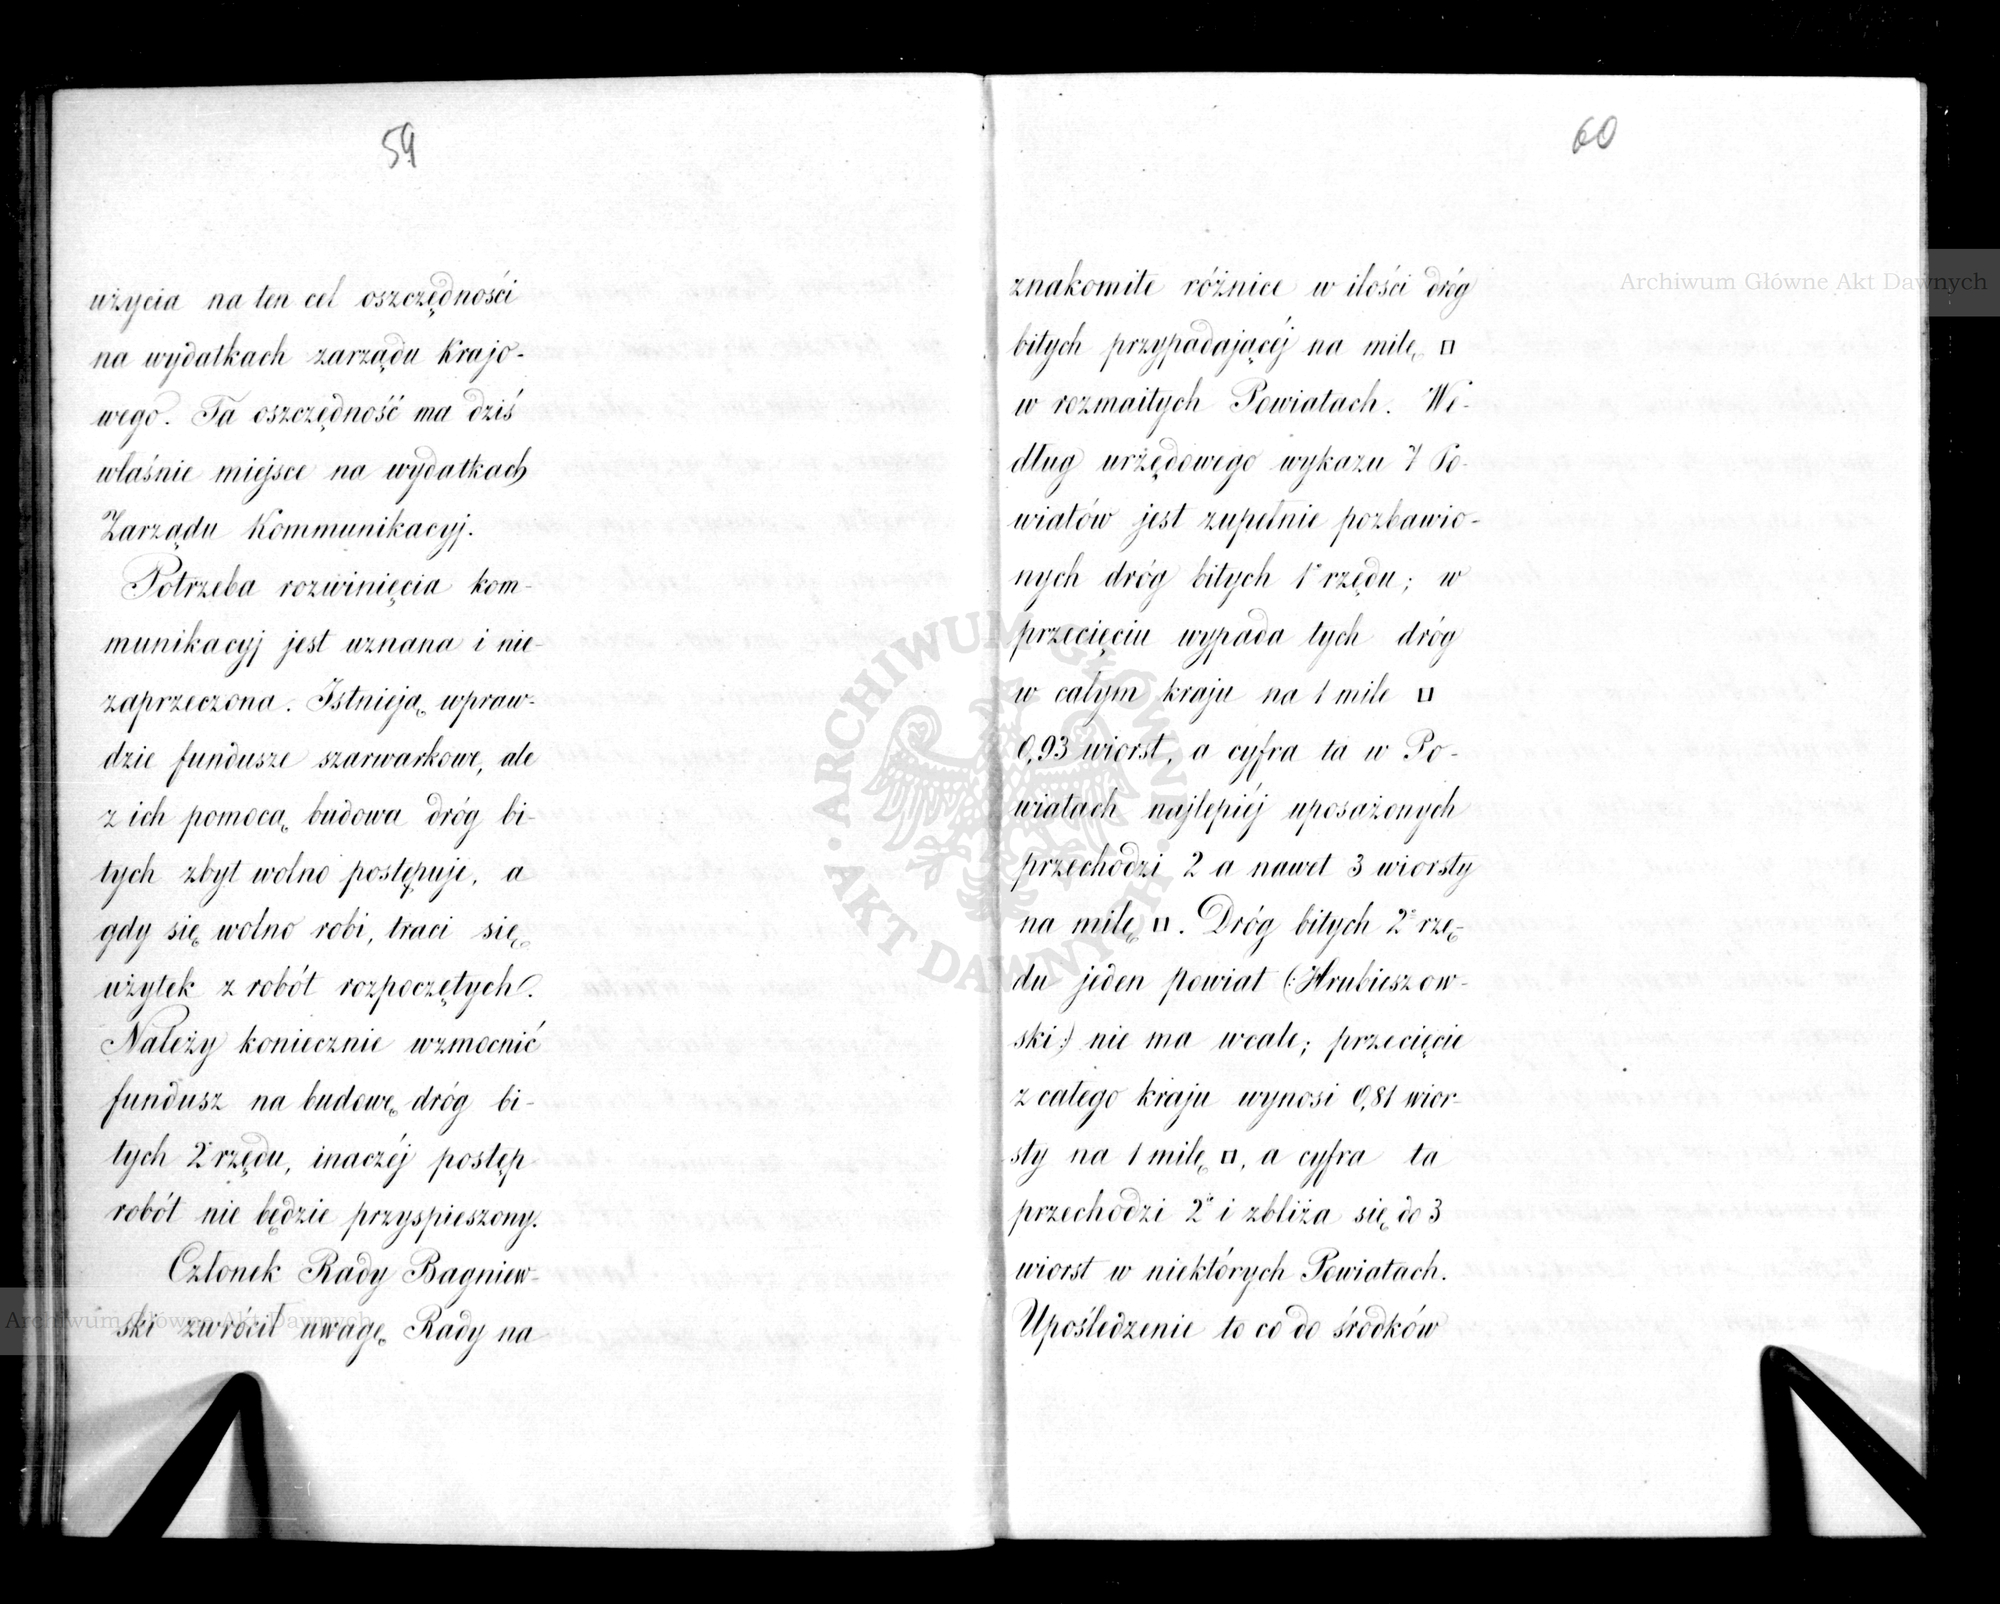 59
użycia na ten cel oszczędności
na wydatkach zarządu Krajo-
wego. Ta oszczędność ma dziś
właśnie miejsce na wydatkach
Zarządu Kommunikacyj.
Potrzeba rozwinięcia kom-
munikacyj jest uznana i nie-
zaprzeczona. Istnieją wpraw-
dzie fundusze szarwarkowe, ale
z ich pomocą budowa dróg bi-
tych zbyt wolno postępuje, a
gdy się wolno robi, traci się
użytek z robót rozpoczętych.
Należy koniecznie wzmocnić
fundusz na budowę dróg bi-
tych 2º rzędu, inaczéj postęp
robót nie będzie przyspieszony.
Członek Rady Bagniew-
ski zwrócił uwagę Rady na
60
znakomite różnice w ilości dróg
bitych przypadającéj na milę □
w rozmaitych Powiatach. We-
dług urzędowego wykazu 7 Po-
wiatów jest zupełnie pozbawio-
nych dróg bitych 1º rzędu; w
przecięciu wypada tych dróg
w całym kraju na 1 mile □
0,93 wiorst, a cyfra ta w Po-
wiatach najlepiéj uposażonych
przechodzi 2 a nawet 3 wiorsty
na milę □. Dróg bitych 2º rzę-
du jeden powiat (:Hrubieszow-
ski:) nie ma wcale; przecięcie
z całego kraju wynosi 0,81 wior-
sty na 1 milę □, a cyfra ta
przechodzi 2º i zbliża się do 3
wiorst w niektórych Powiatach.
Upośledzenie to co do środków
Archiwum Główne Akt Dawnych
Archiwum Główne Akt Dawnych
ARCHIWUM GŁÓWNE AKT DAWNYCH